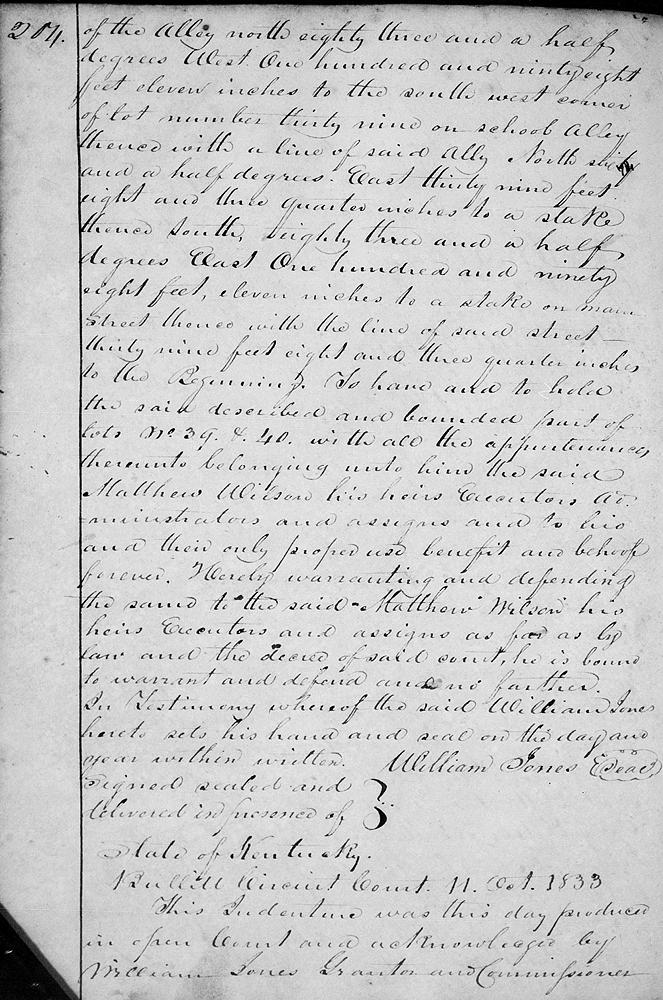 204.
of the Alley north eighty three and a half
degrees West One hundred and ninty eight
feet eleven inches to the south west corner
of lot number thirty nine on school Alley
thence with a line of said Ally North
and a half degrees. East thirty nine feet
eight and three quarter inches to a stake
thence South, eighty three and a half
degrees East One hundred and ninety
eight feet, eleven inches to a stake on main
street thence with the line of said street -
thirty nine feet eight and three quarter inches
to the Beginning. To have and to hold
the said described and bounded part of
lots No. 39. & 40. with all the appurtenances
thereunto belonging unto him the said
Matthew Wilson his heirs Executors Ad-
=ministrators and assigns and to his
and their only proper use benefit and behoof
forever. Hereby warranting and defending
the same to the said Matthew Wilson his
heirs Executors and assigns as far as by
law and the decree of said court, he is bound
to warrant and defend and no farther.
In Testimony whereof the said William Jones
hereto sets his hand and seal on the day and
year within written. William Jones {Seal}
Signed sealed and
delivered in presence of }
State of Kentucky.
Bullitt Circuit Court. 11. Oct. 1833
This Indenture was this day produced
in open Court and acknowledged by
William Jones Grantor and Commissioner